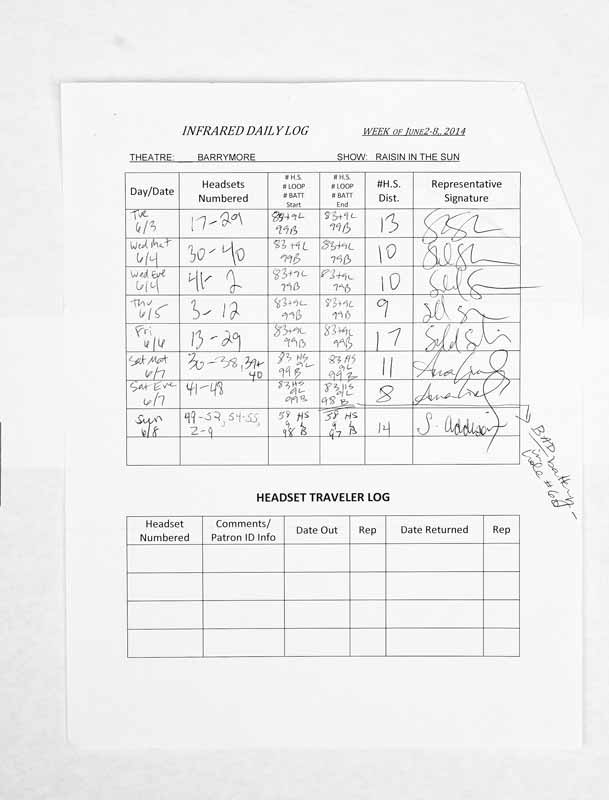 INFRARED DAILY LOG WEEK OF JUNE2-8,, 2014
THEATRE: ___ BARRYMORE SHOW: RAISIN IN THE SUN
Day/Date Headsets Numbered # H.S. # LOOP # BATT Start # H.S. # LOOP # BATT End #H.S. Dist. Representative Signature
Tue 6/3 17-29 83+9L 99B 83+9L 99B 13
Wed Mat 6/4 30-40 83+9L 99B 83+9L 99B 10
Wed Eve 6/4 41-2 83+9L 99B 83+9L 99B 10
Thu 6/5 3-12 83+9L 99B 83+9L 99B 9
Fri 6/6 13-29 83+9L 99B 83+9L 99B 17
Sat Mat 6/7 30-38, 39+ 40 83 HS 9L 99B 83 HS 9L 99B 11
Sat Eve 6/7 41-48 83 HS 9L 99B 83 HS 9L 98B 8
Sun 6/8 49-52, 54-55, 2-9 58 HS 9L 98 B 58 HS 9L 97 B 14 S. Addison
BAD battery
in
#68
HEADSET TRAVELER LOG
Headset Numbered Comments/ Patron ID Info Date Out Rep Date Returned Rep